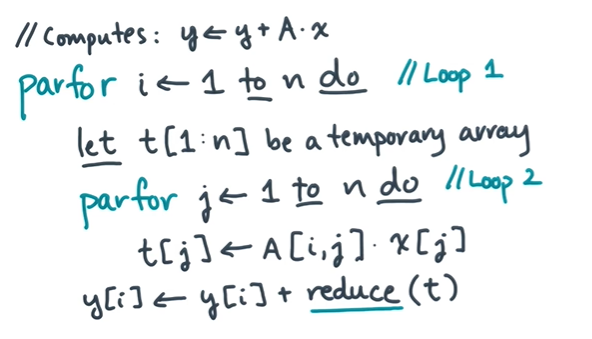 // Computes: y ← y + A · x
parfor i ← 1 to n do // Loop 1
let t[1:n] be a temporary array
parfor j ← 1 to n do // Loop 2
t[j] ← A[i,j] · x[j]
y[i] ← y[i] + reduce(t)